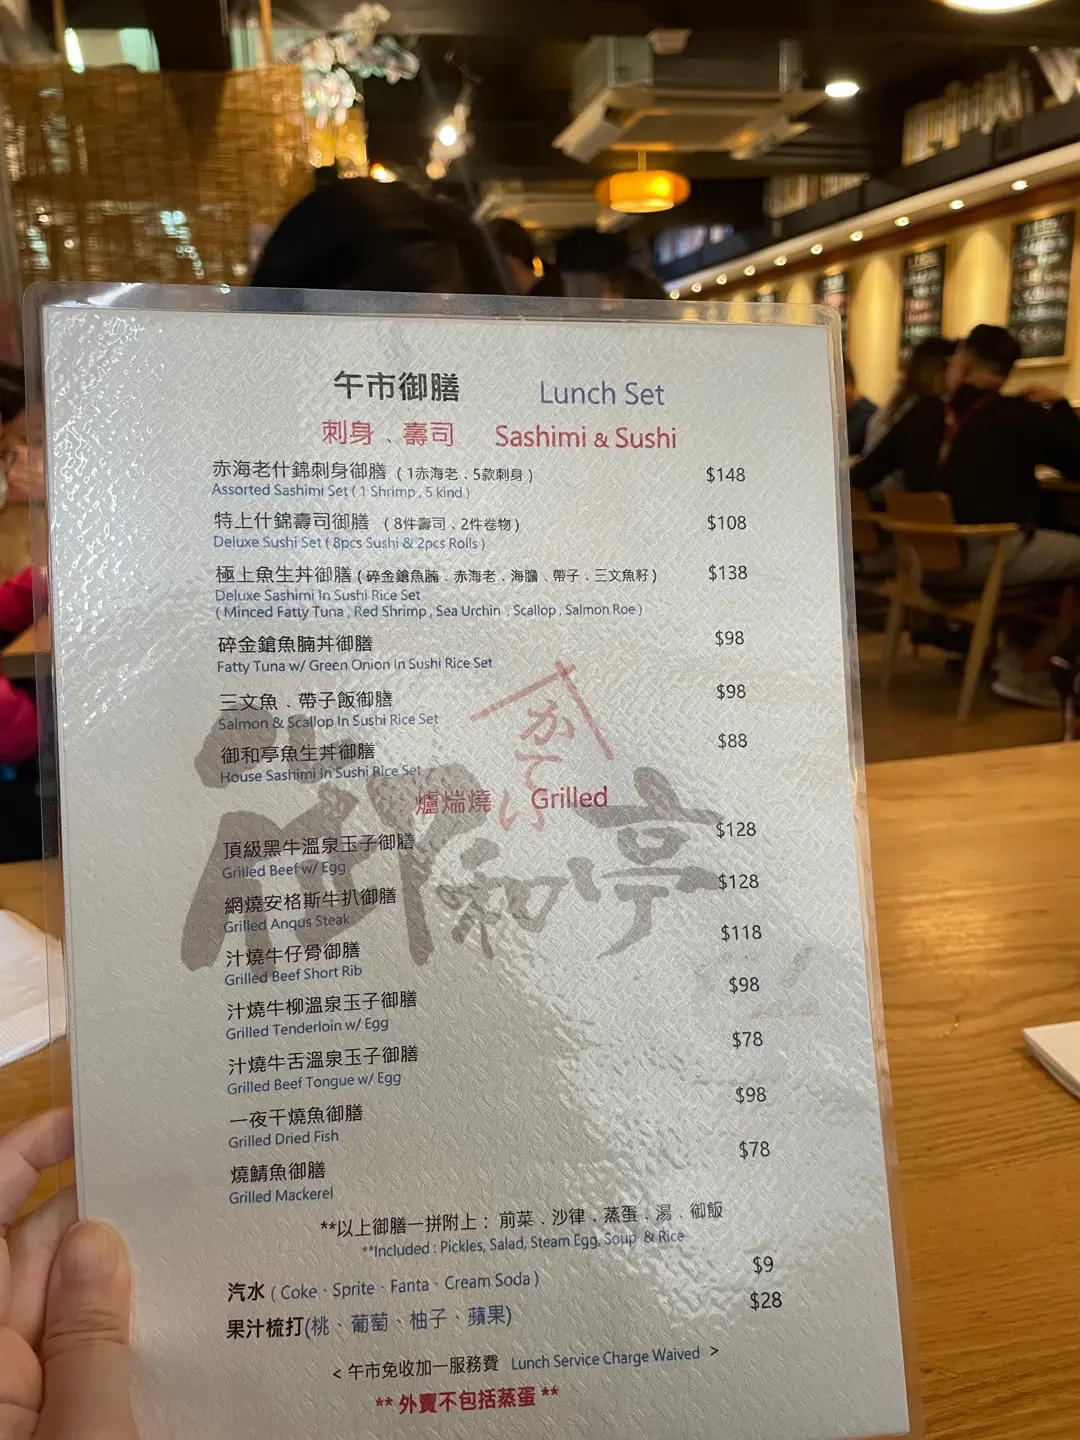 午市御膳 Lunch Set
刺身、壽司 Sashimi & Sushi
赤海老什錦刺身御膳 (1赤海老﹑5款刺身) $148
Assorted Sashimi Set ( 1 Shrimp , 5 kind )
特上什錦壽司御膳 (8件壽司﹑2件卷物) $108
Deluxe Sushi Set ( 8pcs Sushi & 2pcs Rolls )
極上魚生丼御膳 (碎金鎗魚腩﹑赤海老﹑海膽﹑帶子﹑三文魚籽) $138
Deluxe Sashimi In Sushi Rice Set
( Minced Fatty Tuna , Red Shrimp , Sea Urchin , Scallop , Salmon Roe )
碎金鎗魚腩丼御膳 $98
Fatty Tuna w/ Green Onion In Sushi Rice Set
三文魚﹑帶子飯御膳 $98
Salmon & Scallop In Sushi Rice Set
御和亭魚生丼御膳 $88
House Sashimi In Sushi Rice Set
かてい
御和亭
爐端燒 Grilled
頂級黑牛溫泉玉子御膳 $128
Grilled Beef w/ Egg
網燒安格斯牛扒御膳 $128
Grilled Angus Steak
汁燒牛仔骨御膳 $118
Grilled Beef Short Rib
汁燒牛柳溫泉玉子御膳 $98
Grilled Tenderloin w/ Egg
汁燒牛舌溫泉玉子御膳 $78
Grilled Beef Tongue w/ Egg
一夜干燒魚御膳 $98
Grilled Dried Fish
燒鯖魚御膳 $78
Grilled Mackerel
**以上御膳一拼附上：前菜﹑沙律﹑蒸蛋﹑湯﹑御飯
**Included : Pickles, Salad, Steam Egg, Soup & Rice
汽水 ( Coke、Sprite、Fanta、Cream Soda ) $9
果汁梳打(桃、葡萄、柚子、蘋果) $28
< 午市免收加一服務費 Lunch Service Charge Waived >
** 外賣不包括蒸蛋 **